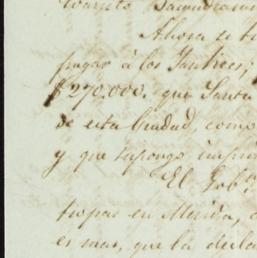 Ahora se
pagar à los Yankees;
$270.000. que Santa
de esta Ciudad, como
y que supongo
El Gob.ⁿ
tropas en Merida,
es mas, que la decla